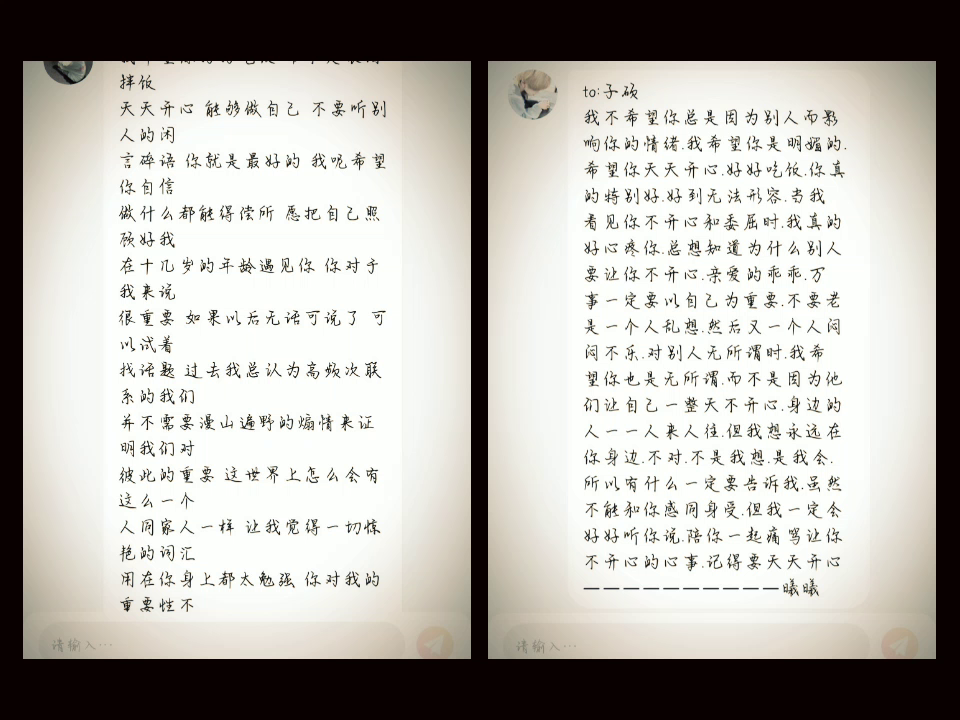 拌饭
天天开心 能够做自己 不要听别
人的闲
言碎语 你就是最好的 我呢希望
你自信
做什么都能得偿所 愿把自己照
顾好我
在十几岁的年龄遇见你 你对于
我来说
很重要 如果以后无话可说了 可
以试着
找话题 过去我总认为高频次联
系的我们
并不需要漫山遍野的煽情来证
明我们对
彼此的重要 这世界上怎么会有
这么一个
人同家人一样 让我觉得一切惊
艳的词汇
用在你身上都太勉强 你对我的
重要性不
请输入…
to:子硕
我不希望你总是因为别人而影
响你的情绪.我希望你是明媚的.
希望你天天开心.好好吃饭.你真
的特别好.好到无法形容.当我
看见你不开心和委屈时.我真的
好心疼你.总想知道为什么别人
要让你不开心.亲爱的乖乖.万
事一定要以自己为重要.不要老
是一个人乱想.然后又一个人闷
闷不乐.对别人无所谓时.我希
望你也是无所谓.而不是因为他
们让自己一整天不开心.身边的
人一一人来人往.但我想永远在
你身边.不对.不是我想.是我会.
所以有什么一定要告诉我.虽然
不能和你感同身受.但我一定会
好好听你说.陪你一起痛骂让你
不开心的心事.记得要天天开心
——————————曦曦
请输入…